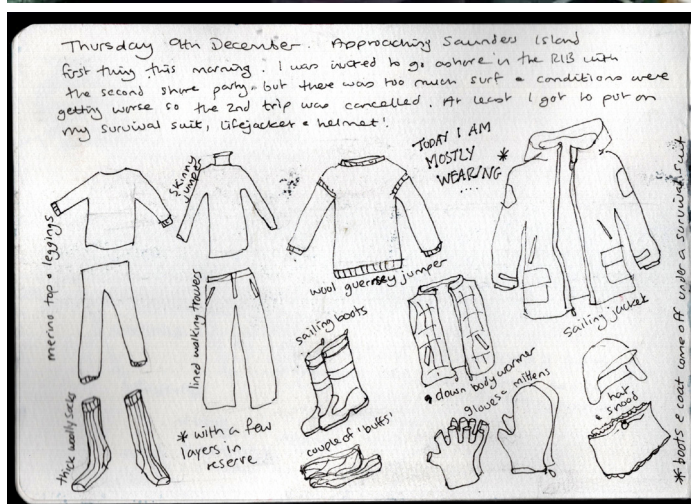 Thursday 9th December. Approaching Saunders Island
first thing this morning. I was invited to go ashore in the RIB with
the second shore party, but there was too much surf & conditions were
getting worse so the 2nd trip was cancelled. At least I got to put on
my survival suit, lifejacket & helmet!
TODAY I AM
MOSTLY
WEARING *
...
merino top & leggings
skinny
jumper
wool guernsey jumper
sailing jacket
lined walking trousers
sailing boots
down body warmer
gloves & mittens
hat
& snood
thick woolly socks
* with a few
layers in
reserve
couple of 'buffs'
* boots & coat come off under a survival suit